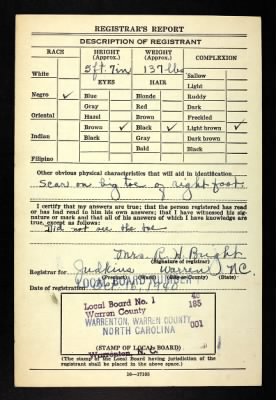 REGISTRAR'S REPORT
DESCRIPTION OF REGISTRANT
RACE HEIGHT (Approx.) WEIGHT (Approx.) COMPLEXION
5 ft. 7 in 137 lbs
Sallow
White EYES HAIR Light
Negro ✓ Blue Blonde Ruddy
Gray Red Dark
Oriental Hazel Brown Freckled
Brown ✓ Black ✓ Light brown ✓
Indian Black Gray Dark brown
Bald Black
Filipino
Other obvious physical characteristics that will aid in identification
Scar on big toe of right foot
I certify that my answers are true; that the person registered has read or has had read to him his own answers; that I have witnessed his signature or mark and that all of his answers of which I have knowledge are true, except as follows:
Did not see the toe
Mrs. R. H. Bright
(Signature of registrar)
Registrar for Judkins Warren N.C.
(Precinct) (Ward) (City or County) (State)
LOCAL BOARD NUMBER
Date of registration
Local Board No. 1
Warren County 185
WARRENTON, WARREN COUNTY 001
NORTH CAROLINA
Warrenton, N. C.
(STAMP OF LOCAL BOARD)
(The stamp of the Local Board having jurisdiction of the registrant shall be placed in the above space.)
16—17105